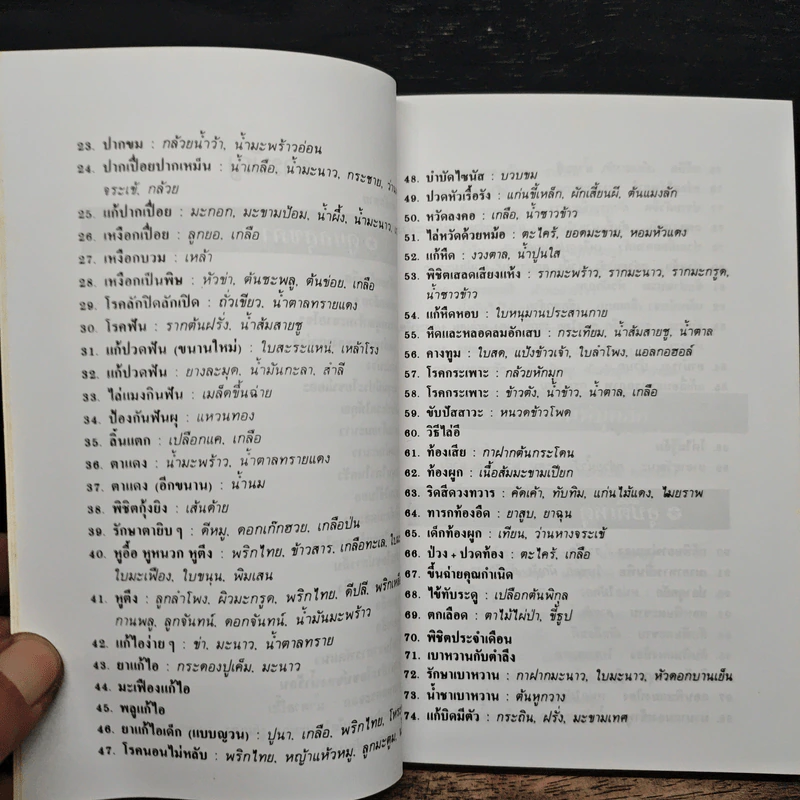 23. ปากขม : กล้วยน้ำว้า, น้ำมะพร้าวอ่อน
24. ปากเปื่อยปากเหม็น : น้ำเกลือ, น้ำมะนาว, กระชาย, ว่าน
จระเข้, กล้วย
25. แก้ปากเปื่อย : มะกอก, มะขามป้อม, น้ำผึ้ง, น้ำมะนาว,
26. เหงือกเปื่อย : ลูกยอ, เกลือ
27. เหงือกบวม : เหล้า
28. เหงือกเป็นพิษ : หัวข่า, ต้นชะพลู, ต้นข่อย, เกลือ
29. โรคลักปิดลักเปิด : ถั่วเขียว, น้ำตาลทรายแดง
30. โรคฟัน : รากต้นฝรั่ง, น้ำส้มสายชู
31. แก้ปวดฟัน (ขนานใหม่) : ใบสะระแหน่, เหล้าโรง
32. แก้ปวดฟัน : ยางละมุด, น้ำมันกะลา, สำลี
33. ไล่แมงกินฟัน : เมล็ดขึ้นฉ่าย
34. ป้องกันฟันผุ : แหวนทอง
35. ลิ้นแตก : เปลือกแค, เกลือ
36. ตาแดง : น้ำมะพร้าว, น้ำตาลทรายแดง
37. ตาแดง (อีกขนาน) : น้ำนม
38. พิชิตกุ้งยิง : เส้นด้าย
39. รักษาตายิบๆ : ดีหมู, ดอกเก๊กฮวย, เกลือป่น
40. หูอื้อ หูหนวก หูตึง : พริกไทย, ข้าวสาร, เกลือทะเล,
ใบมะเฟือง, ใบขนุน, พิมเสน
41. หูตึง : ลูกลำโพง, ผิวมะกรูด, พริกไทย, ดีปลี,
กานพลู, ลูกจันทน์, ดอกจันทน์, น้ำมันมะพร้าว
42. แก้ไอง่ายๆ : ข่า, มะนาว, น้ำตาลทราย
43. ยาแก้ไอ : กระดองปูเค็ม, มะนาว
44. มะเฟืองแก้ไอ
45. พลูแก้ไอ
46. ยาแก้ไอเด็ก (แบบญวน) : ปูนา, เกลือ, พริกไทย,
47. โรคนอนไม่หลับ : พริกไทย, หญ้าแห้วหมู, ลูกมะตูม,
48. บำบัดไซนัส : บวบขม
49. ปวดหัวเรื้อรัง : แก่นขี้เหล็ก, ผักเสี้ยนผี, ต้นแมงลัก
50. หวัดลงคอ : เกลือ, น้ำซาวข้าว
51. ไล่หวัดด้วยหม้อ : ตะไคร้, ยอดมะขาม, หอมหัวแดง
52. แก้หืด : งวงตาล, น้ำปูนใส
53. พิชิตเสลดเสียงแห้ง : รากมะพร้าว, รากมะนาว, รากมะกรูด,
น้ำซาวข้าว
54. แก้หืดหอบ : ใบหนุมานประสานกาย
55. หืดและหลอดลมอักเสบ : กระเทียม, น้ำส้มสายชู, น้ำตาล
56. คางทูม : ใบสด, แป้งข้าวเจ้า, ใบลำโพง, แอลกอฮอล์
57. โรคกระเพาะ : กล้วยหักมุก
58. โรคกระเพาะ : ข้าวตัง, น้ำข้าว, น้ำตาล, เกลือ
59. ขับปัสสาวะ : หนวดข้าวโพด
60. วิธีไล่อึ
61. ท้องเสีย : กาฝากต้นกระโดน
62. ท้องผูก : เนื้อส้มมะขามเปียก
63. ริดสีดวงทวาร : คัดเค้า, ทับทิม, แก่นไม้แดง, ไมยราพ
64. ทารกท้องอืด : ยาสูบ, ยาฉุน
65. เด็กท้องผูก : เทียน, ว่านหางจระเข้
66. ป่วง + ปวดท้อง : ตะไคร้, เกลือ
67. ขึ้นฉ่ายคุณกำเนิด
68. ไข้ทับระดู : เปลือกต้นพิกุล
69. ตกเลือด : ตาไม้ไผ่ป่า, ขี้ธูป
70. พิชิตประจำเดือน
71. เบาหวานกับตำลึง
72. รักษาเบาหวาน : กาฝากมะนาว, ใบมะนาว, หัวดอกบานเย็น
73. น้ำชาเบาหวาน : ต้นหูกวาง
74. แก้บิดมีตัว : กระถิน, ฝรั่ง, มะขามเทศ